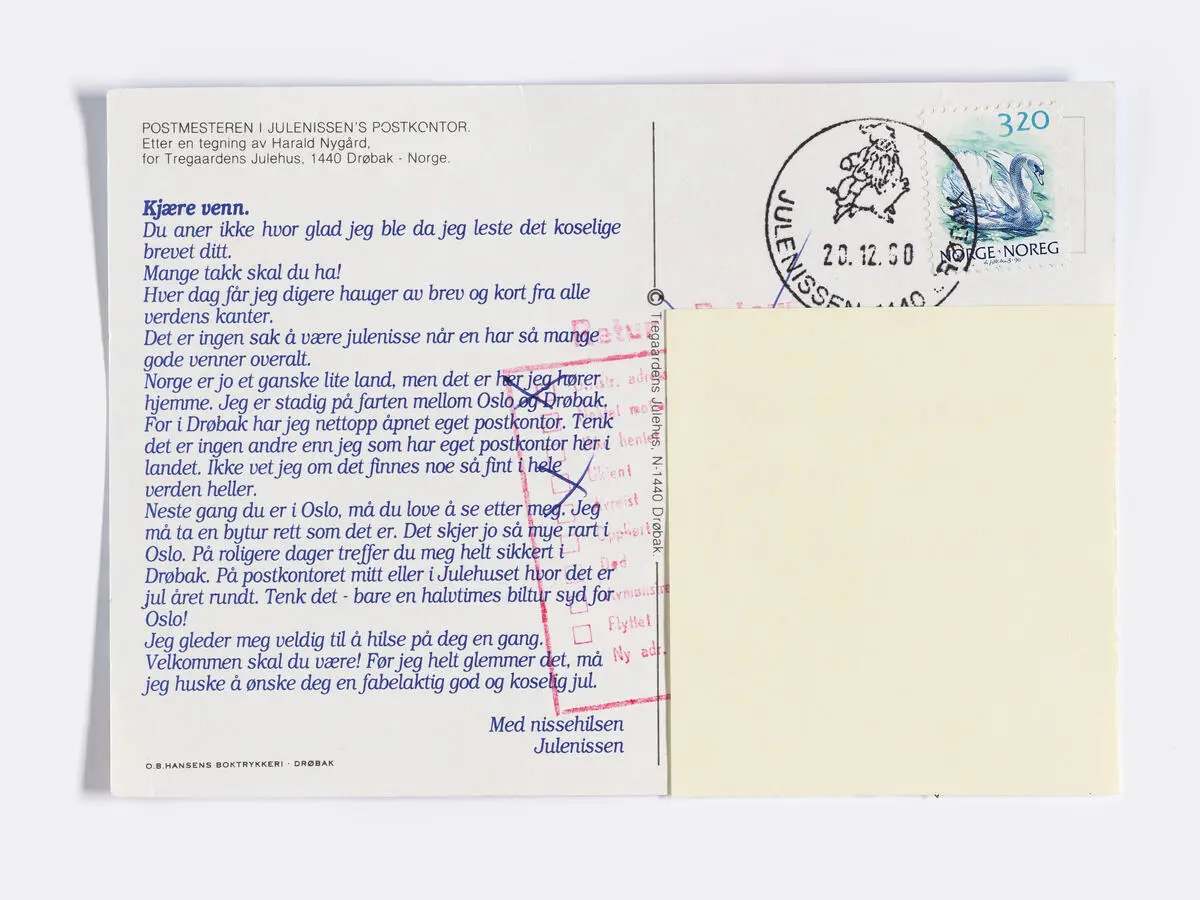 POSTMESTEREN I JULENISSEN'S POSTKONTOR.
Etter en tegning av Harald Nygård,
for Tregaardens Julehus, 1440 Drøbak - Norge.
Kjære venn.
Du aner ikke hvor glad jeg ble da jeg leste det koselige
brevet ditt.
Mange takk skal du ha!
Hver dag får jeg digere hauger av brev og kort fra alle
verdens kanter.
Det er ingen sak å være julenisse når en har så mange
gode venner overalt.
Norge er jo et ganske lite land, men det er her jeg hører
hjemme. Jeg er stadig på farten mellom Oslo og Drøbak.
For i Drøbak har jeg nettopp åpnet eget postkontor. Tenk
det er ingen andre enn jeg som har eget postkontor her i
landet. Ikke vet jeg om det finnes noe så fint i hele
verden heller.
Neste gang du er i Oslo, må du love å se etter meg. Jeg
må ta en bytur rett som det er. Det skjer jo så mye rart i
Oslo. På roligere dager treffer du meg helt sikkert i
Drøbak. På postkontoret mitt eller i Julehuset hvor det er
jul året rundt. Tenk det - bare en halvtimes biltur syd for
Oslo!
Jeg gleder meg veldig til å hilse på deg en gang.
Velkommen skal du være! Før jeg helt glemmer det, må
jeg huske å ønske deg en fabelaktig god og koselig jul.
Med nissehilsen
Julenissen
O.B.HANSENS BOKTRYKKERI · DRØBAK
© Tregaardens Julehus, N-1440 Drøbak.
JULENISSEN 1440
20.12.90
320
NORGE·NOREG
Ukjent
Død
Flyttet
Ny adr.